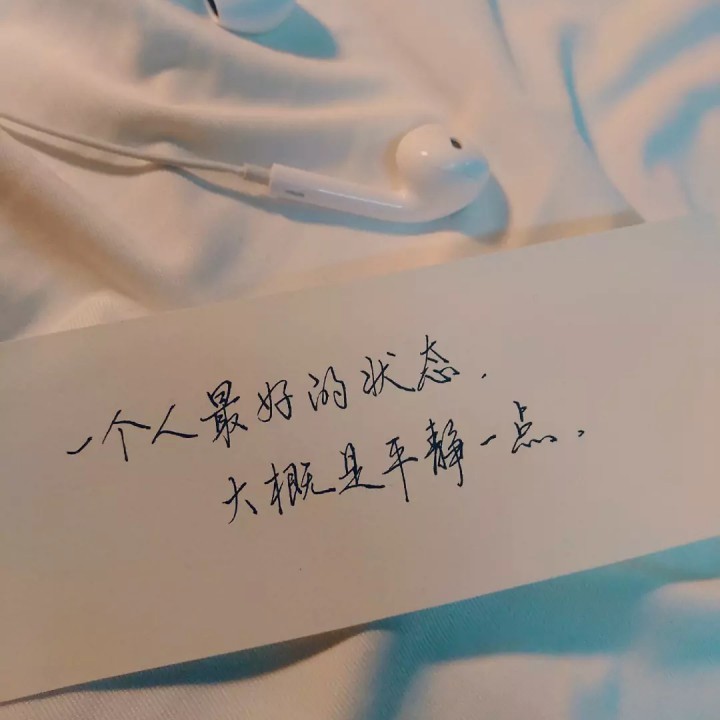 一个人最好的状态,
大概是平静一点,